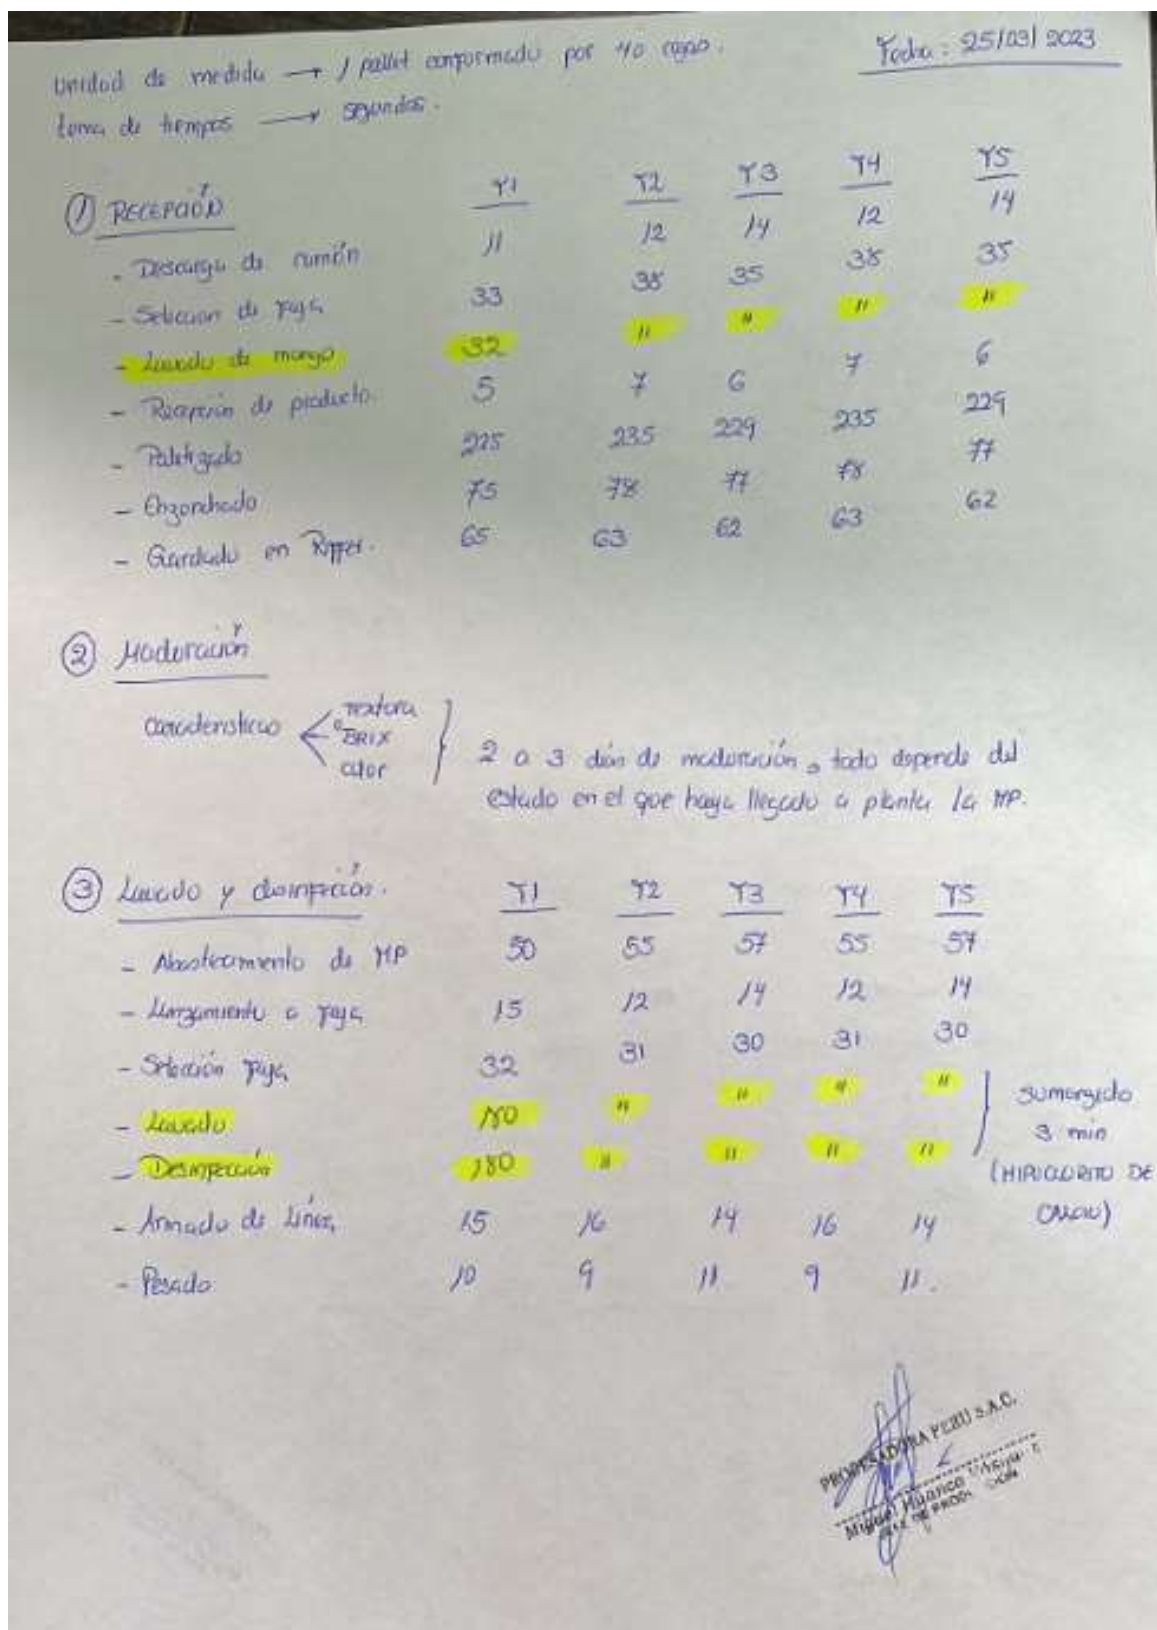 Unidad de medida → 1 pallet conformado por 40 cajas.
Fecha: 25/03/2023
toma de tiempos → segundos.
① RECEPCIÓN T1 T2 T3 T4 T5
- Descarga de camión 11 12 14 12 14
- Selección de faja 33 38 35 38 35
- Lavado de mango 32 " " " "
- Recepción de producto. 5 7 6 7 6
- Paletizado 225 235 229 235 229
- Enzonchado 75 78 77 78 77
- Guardado en 65 63 62 63 62
② Maduración
Textura
Características °BRIX
color
2 a 3 días de maduración, todo depende del
estado en el que haya llegado a planta la MP.
③ Lavado y desinfección. T1 T2 T3 T4 T5
- Abastecimiento de MP 50 55 57 55 57
- Lanzamiento a faja 15 12 14 12 14
- Selección faja 32 31 30 31 30
- Lavado 180 " " " "
- Desinfección 180 " " " "
sumergido
3 min
(HIPOCLORITO DE
CALCIO)
- Armado de Línea 15 16 14 16 14
- Pesado 10 9 11 9 11.
PERU S.A.C.
Miguel Huanca